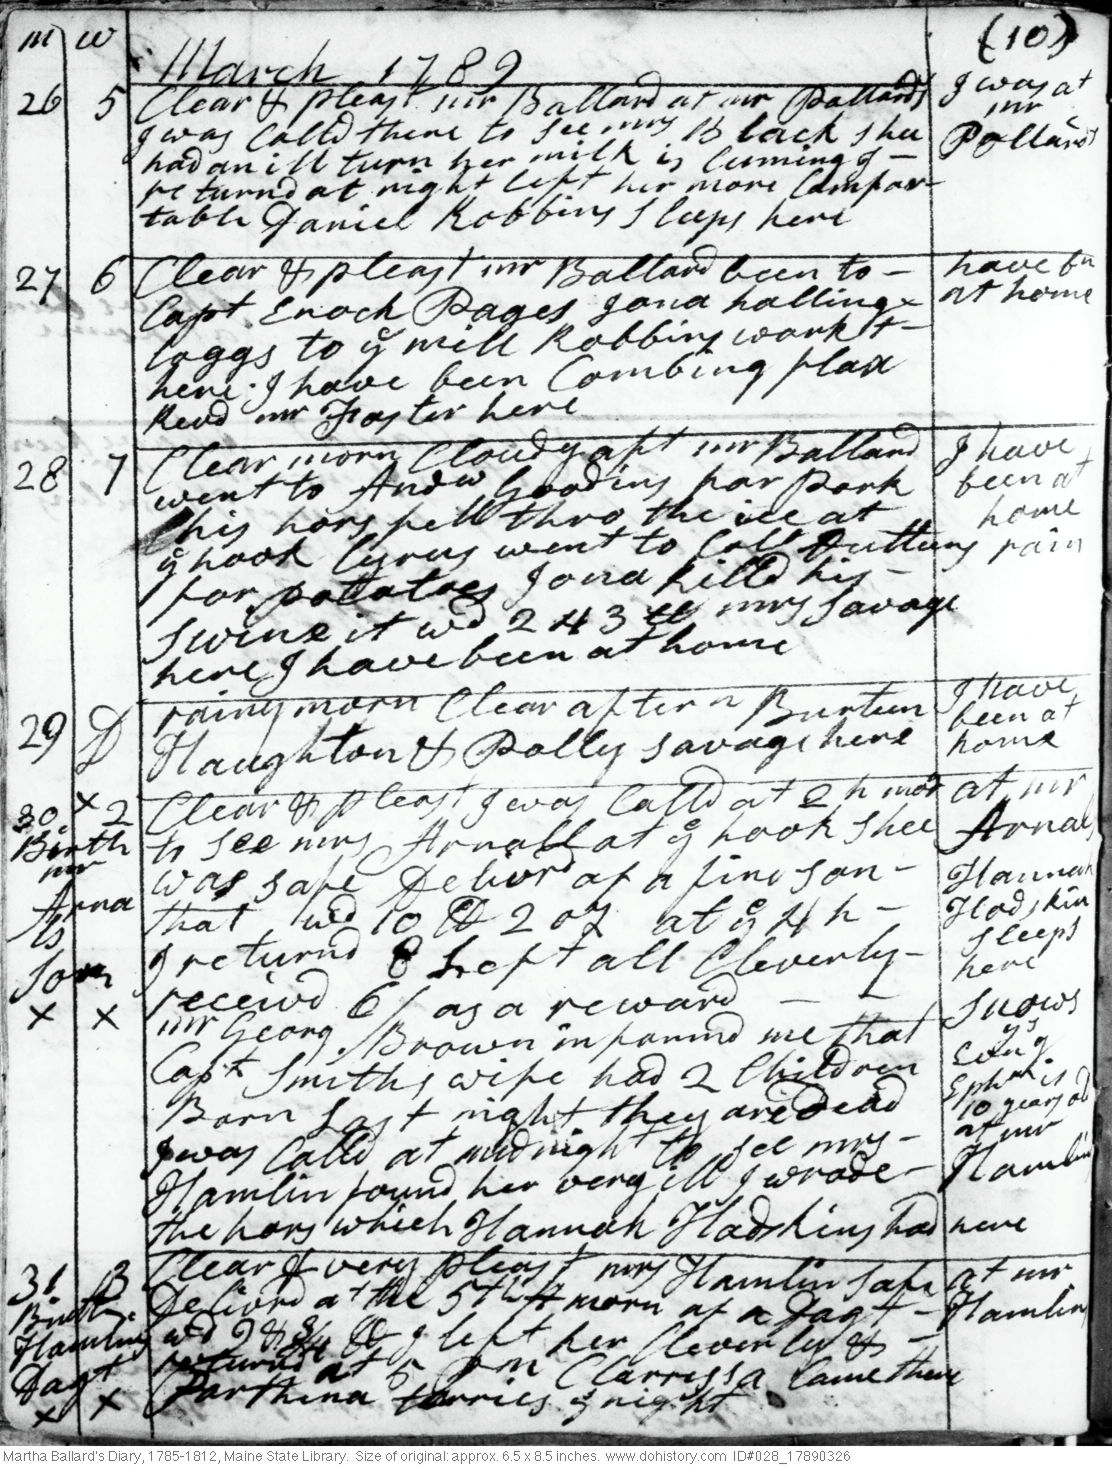 m w (10)
March 1789
26 5 Clear & pleast mr Ballard at mr Pollards I was at
I was Calld there to see mrs Black shee mr
had an ill turn her milk is Cuming I – Pollards
returnd at night left her more Comfor-
table Daniel Robbins sleeps here
27 6 Clear & pleast mr Ballard been to – have bn
Capt Enoch Pages Jona halling – at home
loggs to ye mill Robbins workt –
here. I have been Combing flax
Revd mr Foster here
28 7 Clear morn Cloudy aft mr Ballard I have
went to Andw Goodins for Pork been at
his hors fell thro the ice at home
ye hook Cyrus went to Coll Duttuns rain
for potatoes Jona killd his –
swine it wd 243 lb mrs Savage
here, I have been at home
29 D rainy morn Clear aftern Burten I have
Haughton & Polly Savage here been at
home
30 x 2 Clear & pleast I was Calld at 2 h morn at mr
Birth to see mrs Arnall at ye hook shee Arnals
mr was safe Delivrd of a fine son – Hannah
Arna that wd 10 lb 2 oz at ye 4 h – Hodskin
ls I returnd 8 Left all Cleverly – sleeps
son receivd 6/ as a reward – – here
x x mr Georg Brown informd me that Snows
Capt Smiths wife had 2 Children
Born Last night they are Dead Ephm is
I was Calld at midnight to see mrs – 10 years old
Hamlin found her very ill I wrode – at mr
the hors which Hannah Hadskins had Hamlin
here
31 3 Clear & very pleast mrs Hamlin safe at mr
Birth Delivrd at the 5th h morn of a Dagt – Hamlins
Hamlins wd 9 & 3/4 lb I left her Cleverly & –
Dagt returnd at 5 pm Clarrissa Came there
x x Parthena tarries ye night
Martha Ballard's Diary, 1785-1812, Maine State Library. Size of original: approx. 6.5 x 8.5 inches. www.dohistory.com ID#028_17890326